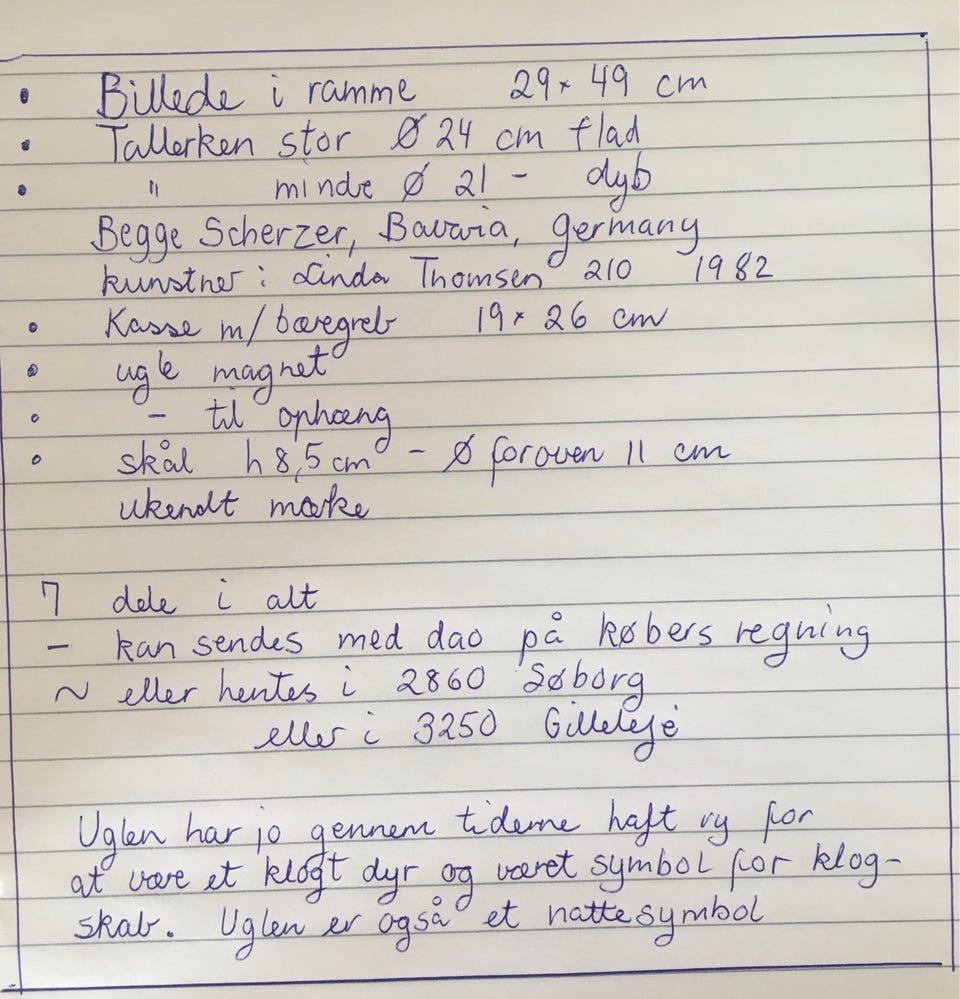 • Billede i ramme 29 × 49 cm
• Tallerken stor Ø 24 cm flad
• " minde Ø 21 - dyb
Begge Scherzer, Bavaria, Germany
kunstner: Linda Thomsen 210 1982
• Kasse m/ bæregreb 19 × 26 cm
• ugle magnet
• - til ophæng
• skål h 8,5 cm - Ø foroven 11 cm
ukendt mærke
7 dele i alt
- kan sendes med dao på købers regning
~ eller hentes i 2860 Søborg
eller i 3250 Gilleleje
Uglen har jo gennem tiderne haft ry for
at være et klogt dyr og været symbol for klog-
skab. Uglen er også et nattesymbol